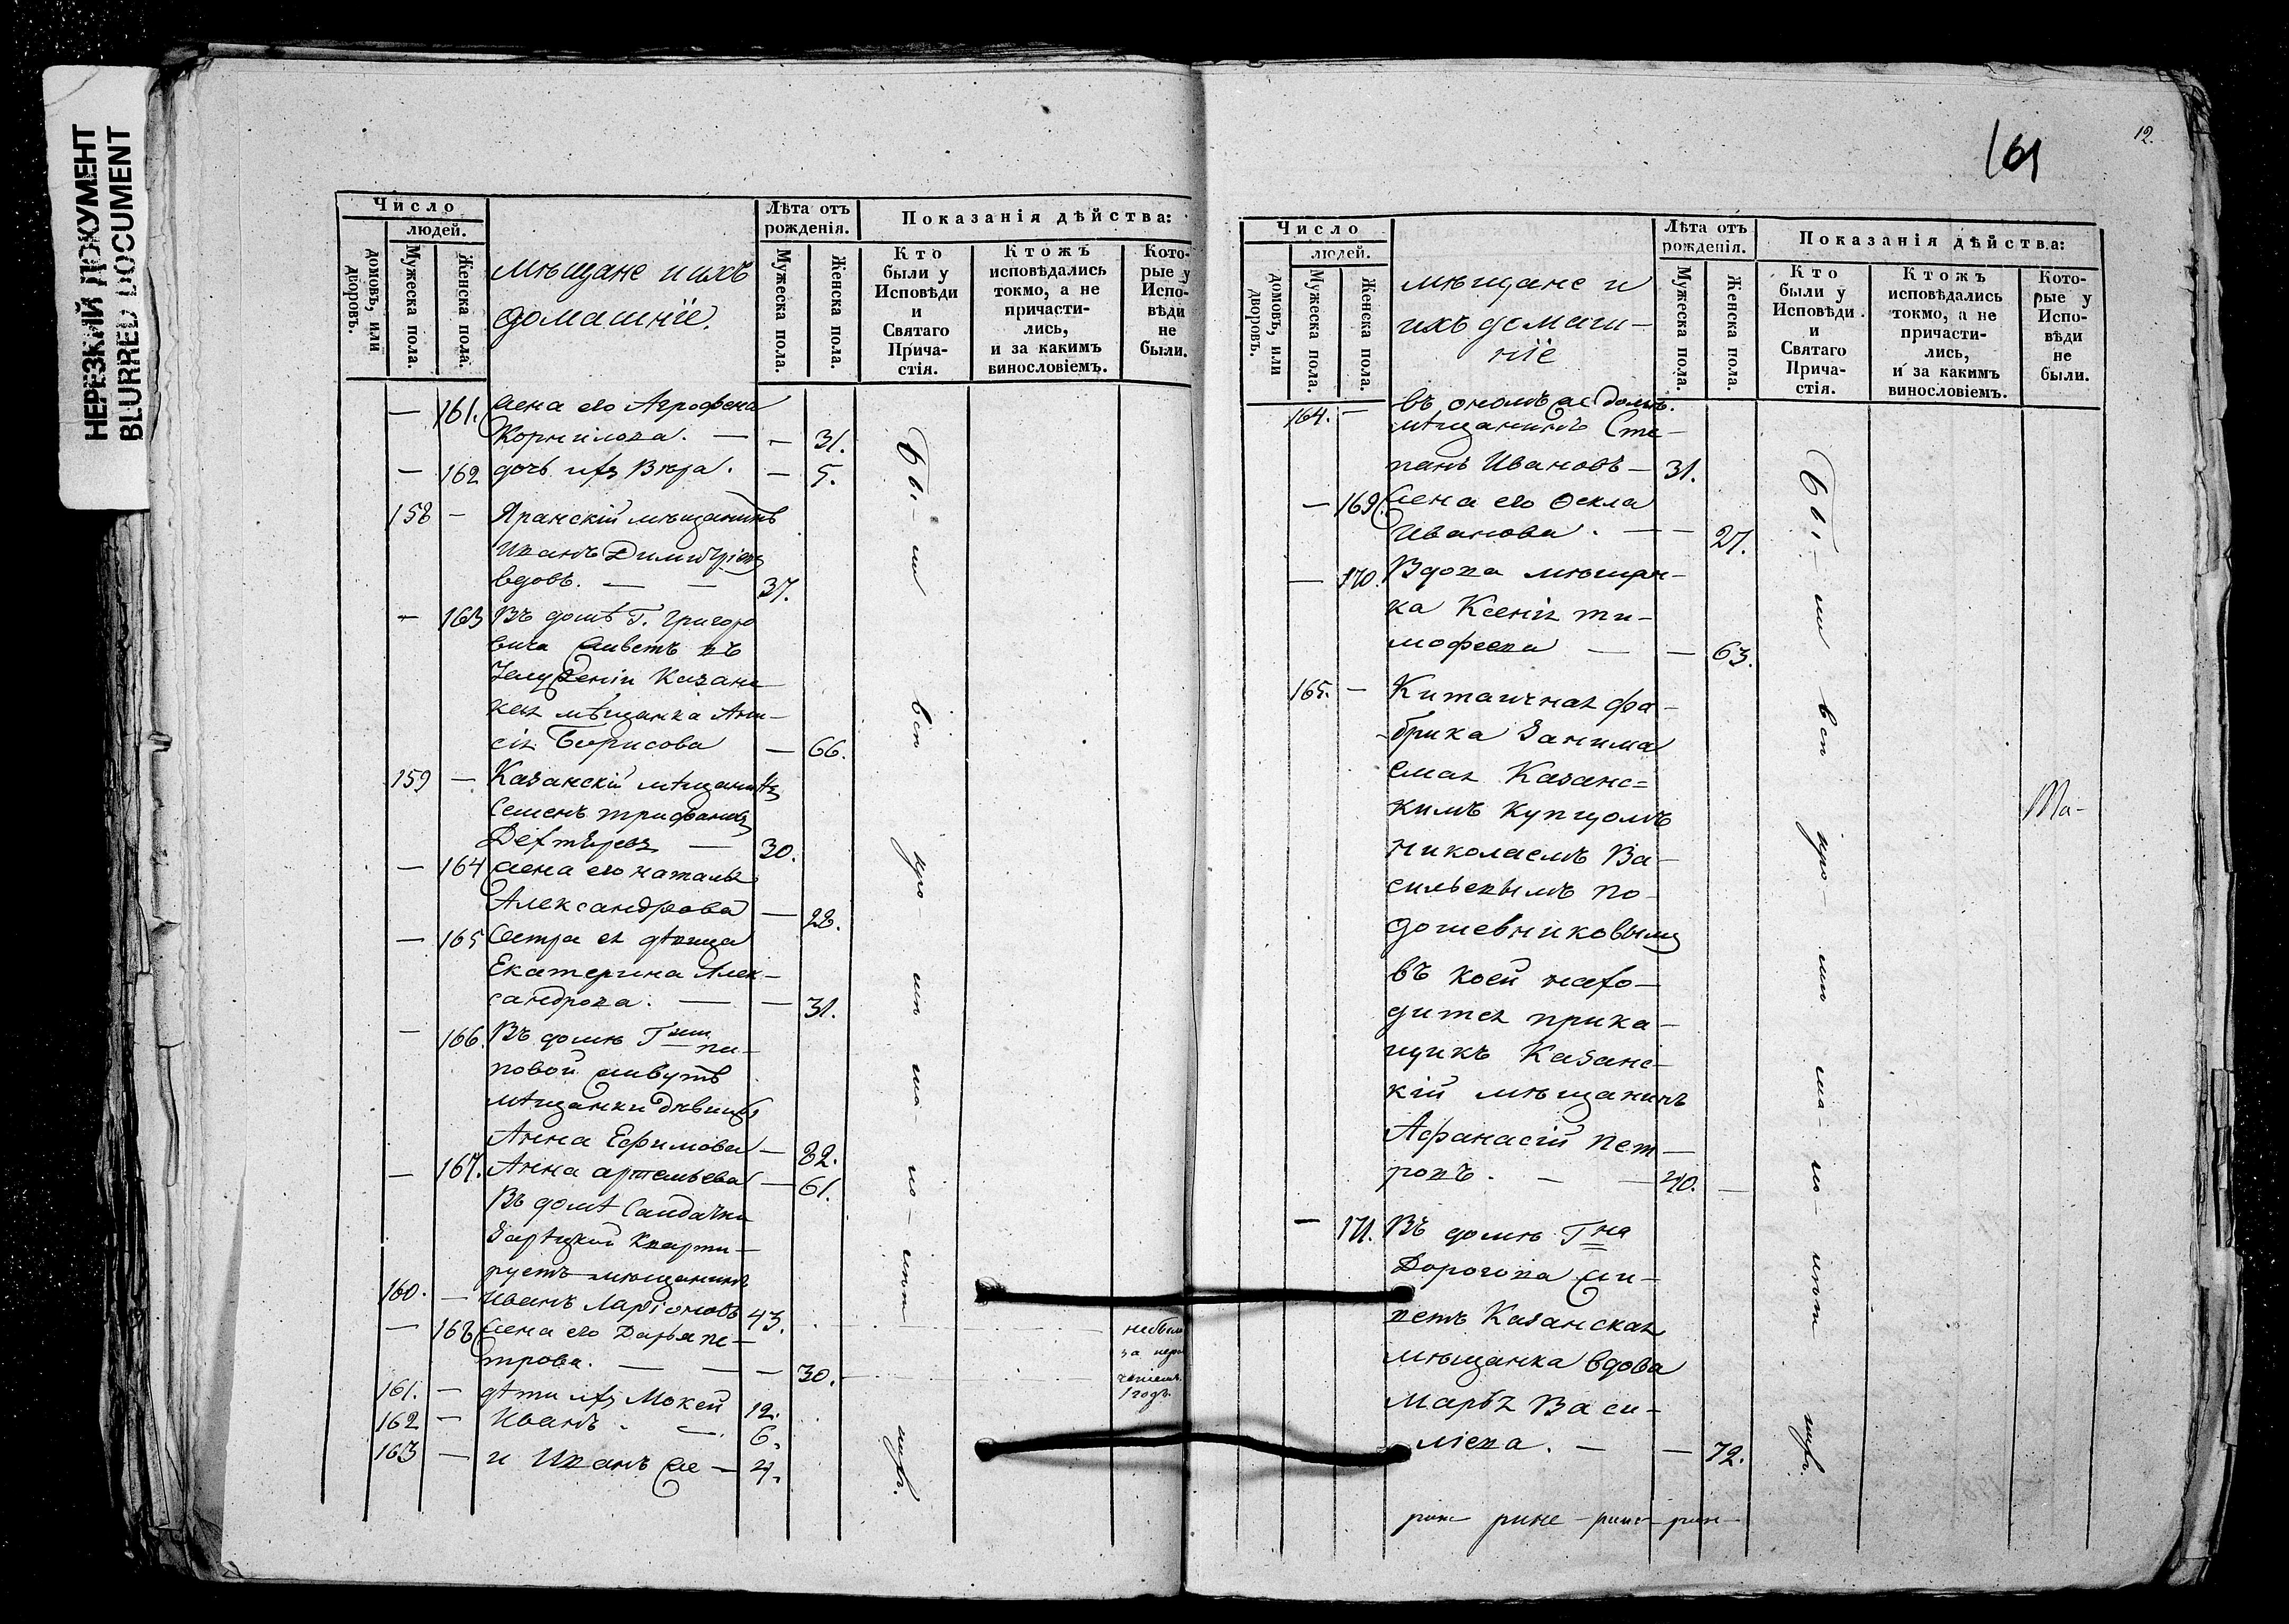 НЕРЕЗКИЙ ДОКУМЕНТ
BLURRED DOCUMENT
Число
людей.
домовъ, или дворовъ.
Мужеска пола.
Женска пола.
мѣщане и ихъ
домашнїе.
Лѣта отъ
рожденія.
Мужеска пола.
Женска пола.
Показанія дѣйства:
Кто
были у
Исповѣди
и
Святаго
Прича-
стія.
Ктожъ
исповѣдались
токмо, а не
причасти-
лись,
и за какимъ
винословіемъ.
Кото-
рые у
Испо-
вѣди
не
были.
— 161. Жена его Агрофена
Корнилова. — — 31.
— 162 дочь ихъ Вѣра. — 5.
158 — Яранскій мѣщанинъ
Иванъ Димитріевъ
вдовъ. — — 37.
— 163 Въ домѣ Г. Григоро
вича живетъ въ
Казанс
кая мѣщанка Ани-
сія Борисова — 66.
159 — Казанскій мѣщанинъ
Семенъ Трифановъ
Дехтѣревъ — 30.
— 164 Жена его Наталья
Александрова — 28.
— 165 Сестра ея дѣвица
Екатерина Алек-
сандрова. — — 31.
— 166. Въ домѣ Гжи пи-
повой живутъ
мѣщанки дѣвицы
Анна Ефимова — 82.
— 167. Анна Артемьева — 61.
Въ домѣ
кварти-
руетъ мѣщанинъ
160. — Иванъ Ларіоновъ 43.
— 168 Жена его Дарья Пе-
трова. — — — 30.
161. — дѣти ихъ Мокей 12.
162 — Иванъ. — 6.
163 — и Иванъ же — 4.
Бы-
ли
всѣ
про-
ли
ма-
ло-
лѣт-
нихъ.
не были
за
1 годъ.
12.
161
Число
людей.
домовъ, или дворовъ.
Мужеска пола.
Женска пола.
мѣщане и
ихъ домаш-
нїе
Лѣта отъ
рожденія.
Мужеска пола.
Женска пола.
Показанія дѣйства:
Кто
были у
Исповѣди
и
Святаго
Прича-
стія.
Ктожъ
исповѣдались
токмо, а не
причасти-
лись,
и за какимъ
винословіемъ.
Кото-
рые у
Испо-
вѣди
не
были.
164. — въ ономъ же домѣ.
мѣщанинъ Сте-
панъ Ивановъ — 31.
— 169. Жена его Ѳекла
Иванова. — — 27.
— 170. Вдова мѣщан-
ка Ксенія Ти-
мофеева — — 63.
165. — Китаичная фа-
брика занима
емая Казанс=
кимъ купцомъ
Николаемъ Ва-
сильевымъ По-
дошевниковымъ
въ коей нахо-
дится прика-
щикъ Казанс-
кій мѣщанинъ
Афанасій Пет-
ровъ. — — 40. —
— 171. Въ домѣ Гна
Дорогова жи-
ветъ Казанская
мѣщанка вдова
Марья Васи-
лїева. — — 72.
Бы-
ли
всѣ
ма-
ло-
лѣт
нихъ.
Ма-